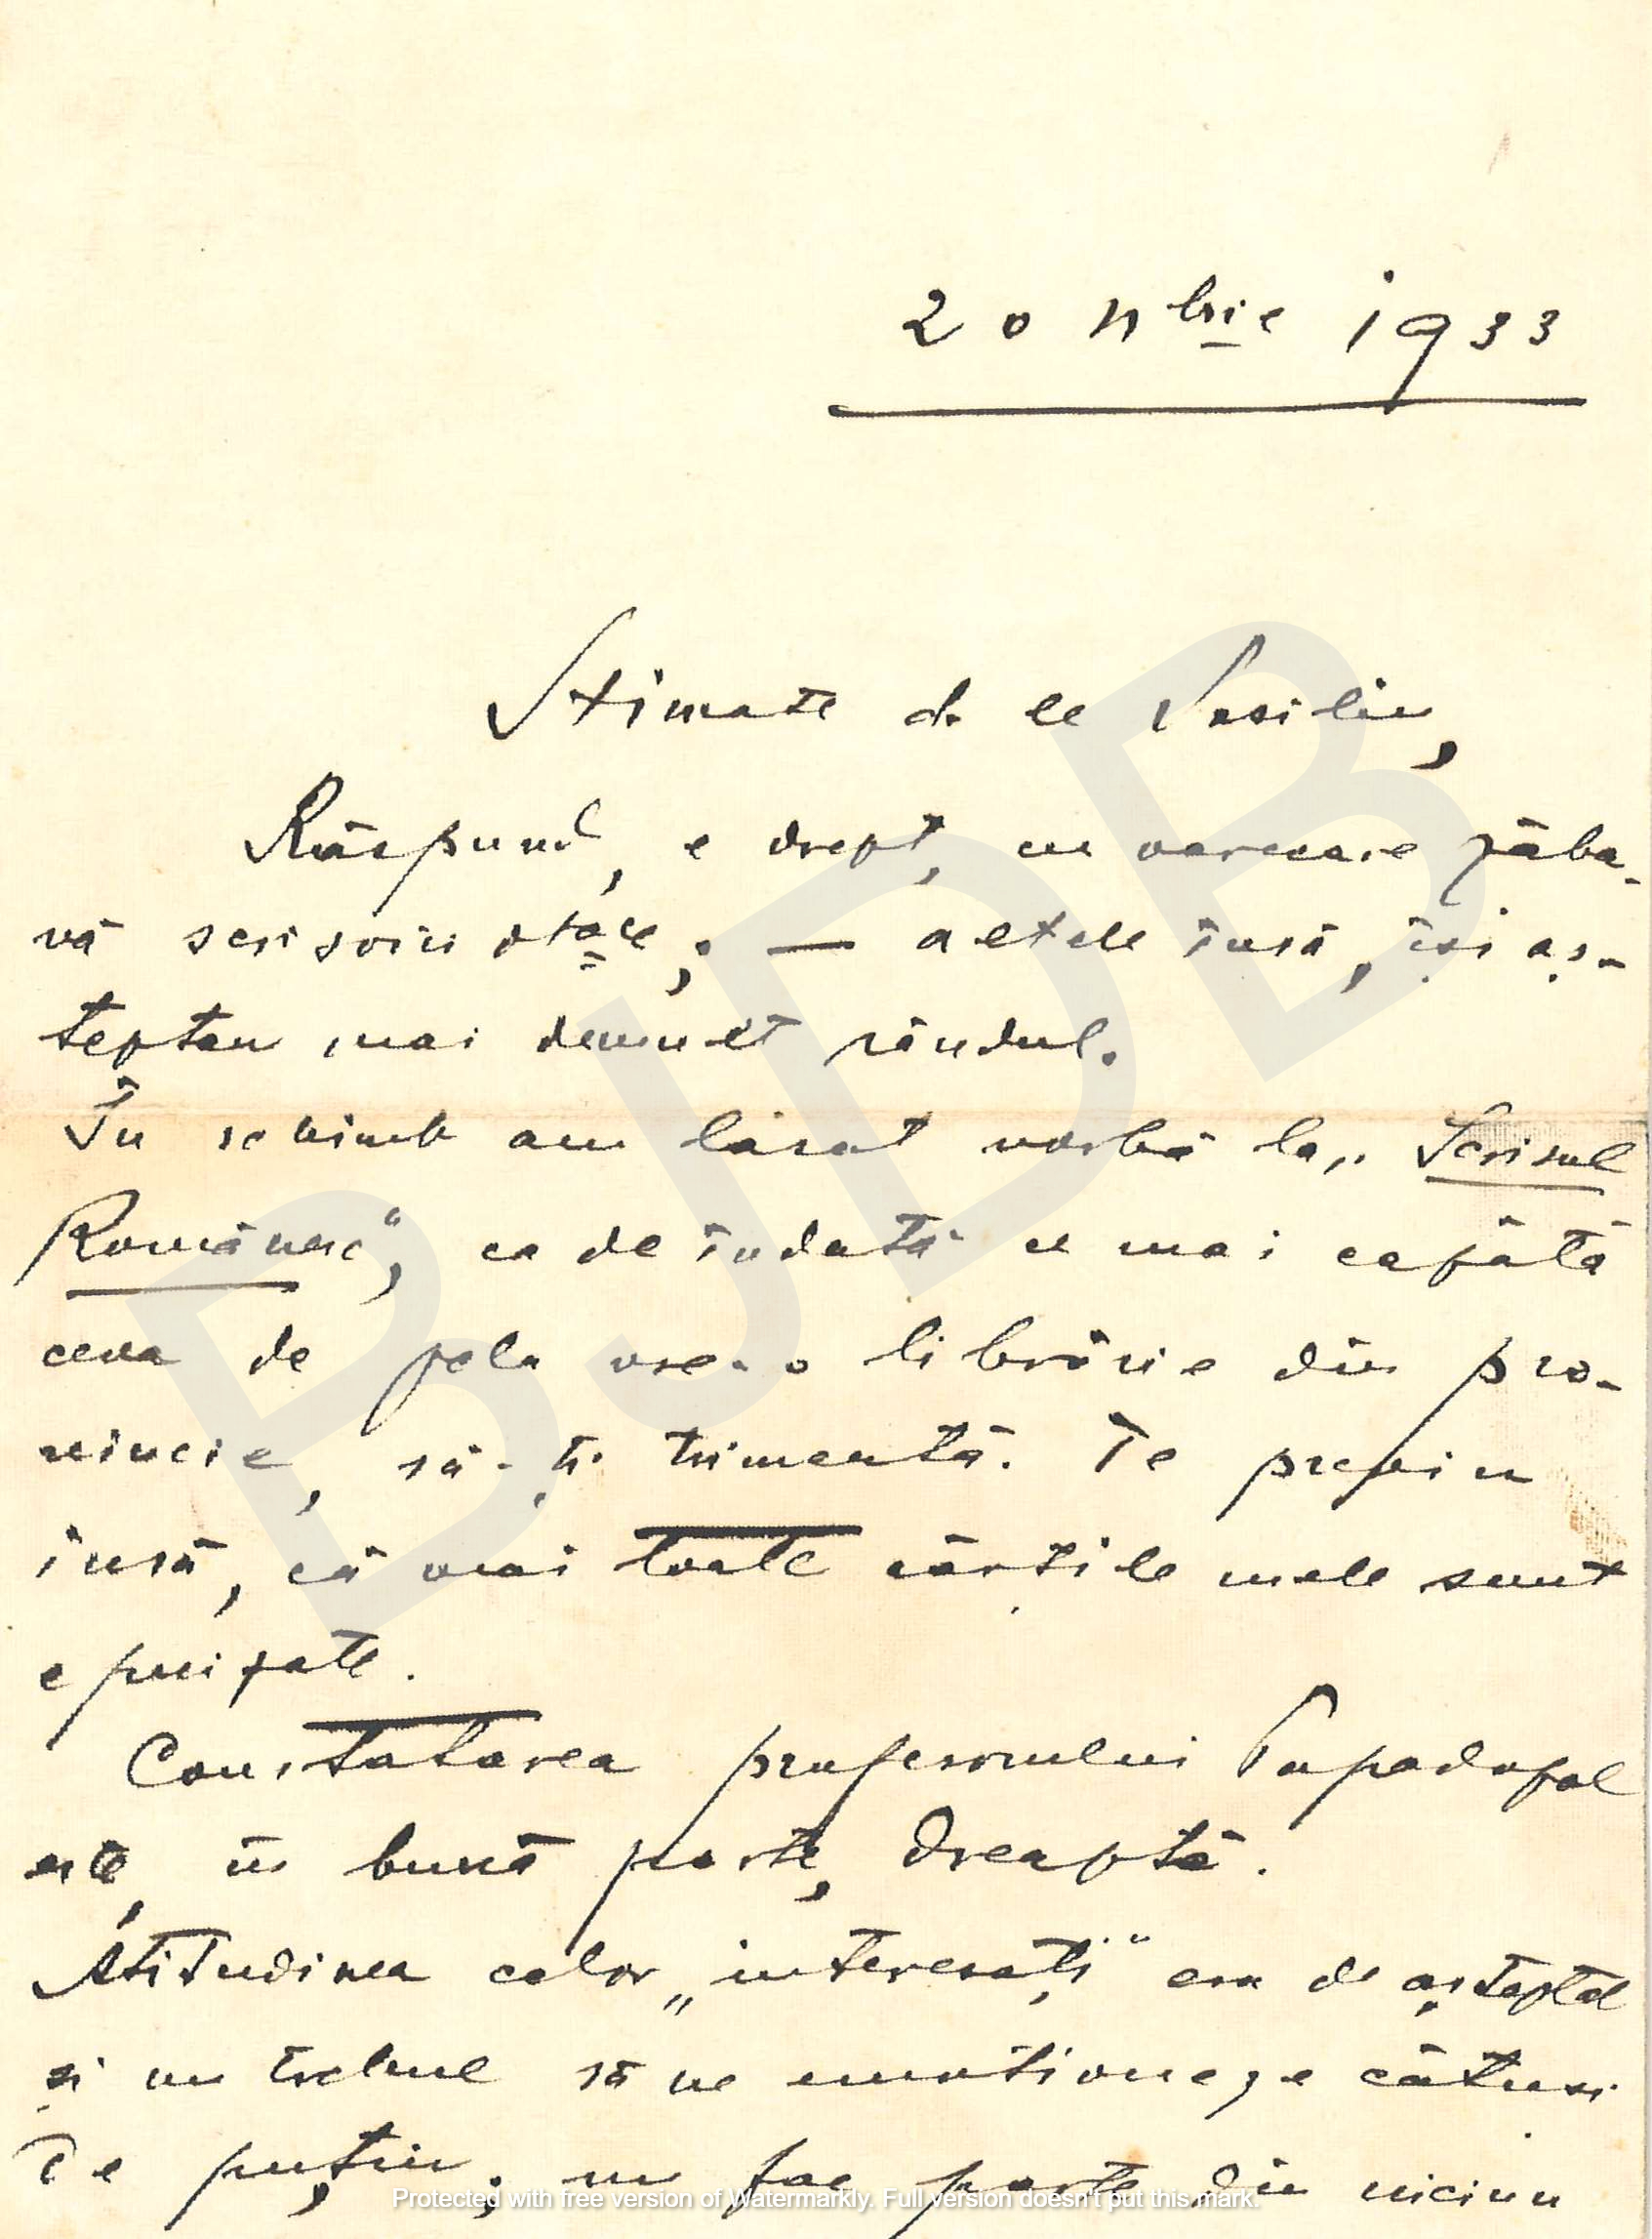 20 Nbrie 1933
Stimate d-le Vasiliu,
Răspund, e drept, cu oarecare zăba-
vă scrisorii dtale; — altele însă, își aș-
teptau mai demult rândul.
În schimb am lăsat vorbă la „Scrisul
Românesc", ca de îndată ce mai capătă
ceva de pela vre-o librărie din pro-
vincie, să-ți trimeată. Te previn
însă, că mai toate cărțile mele sunt
epuizate.
Constatarea profesorului Papadopol
este, în bună parte, dreaptă.
Atitudinea celor „interesați" era de așteptat
și nu trebue să ne emoționeze câtuși
de puțin; nu fac parte din niciun
BJDB
Protected with free version of Watermarkly. Full version doesn't put this mark.